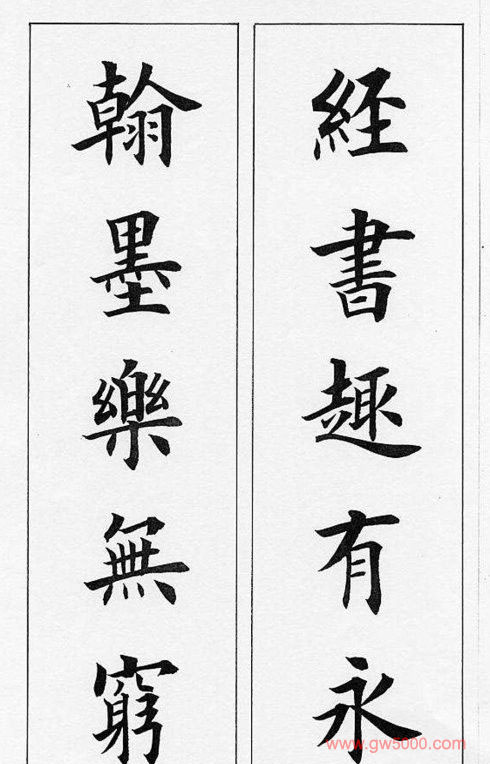 經書趣有永
翰墨樂無窮
www.gw5000.com